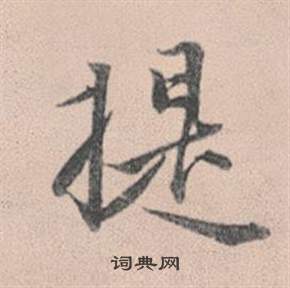 提
词典网